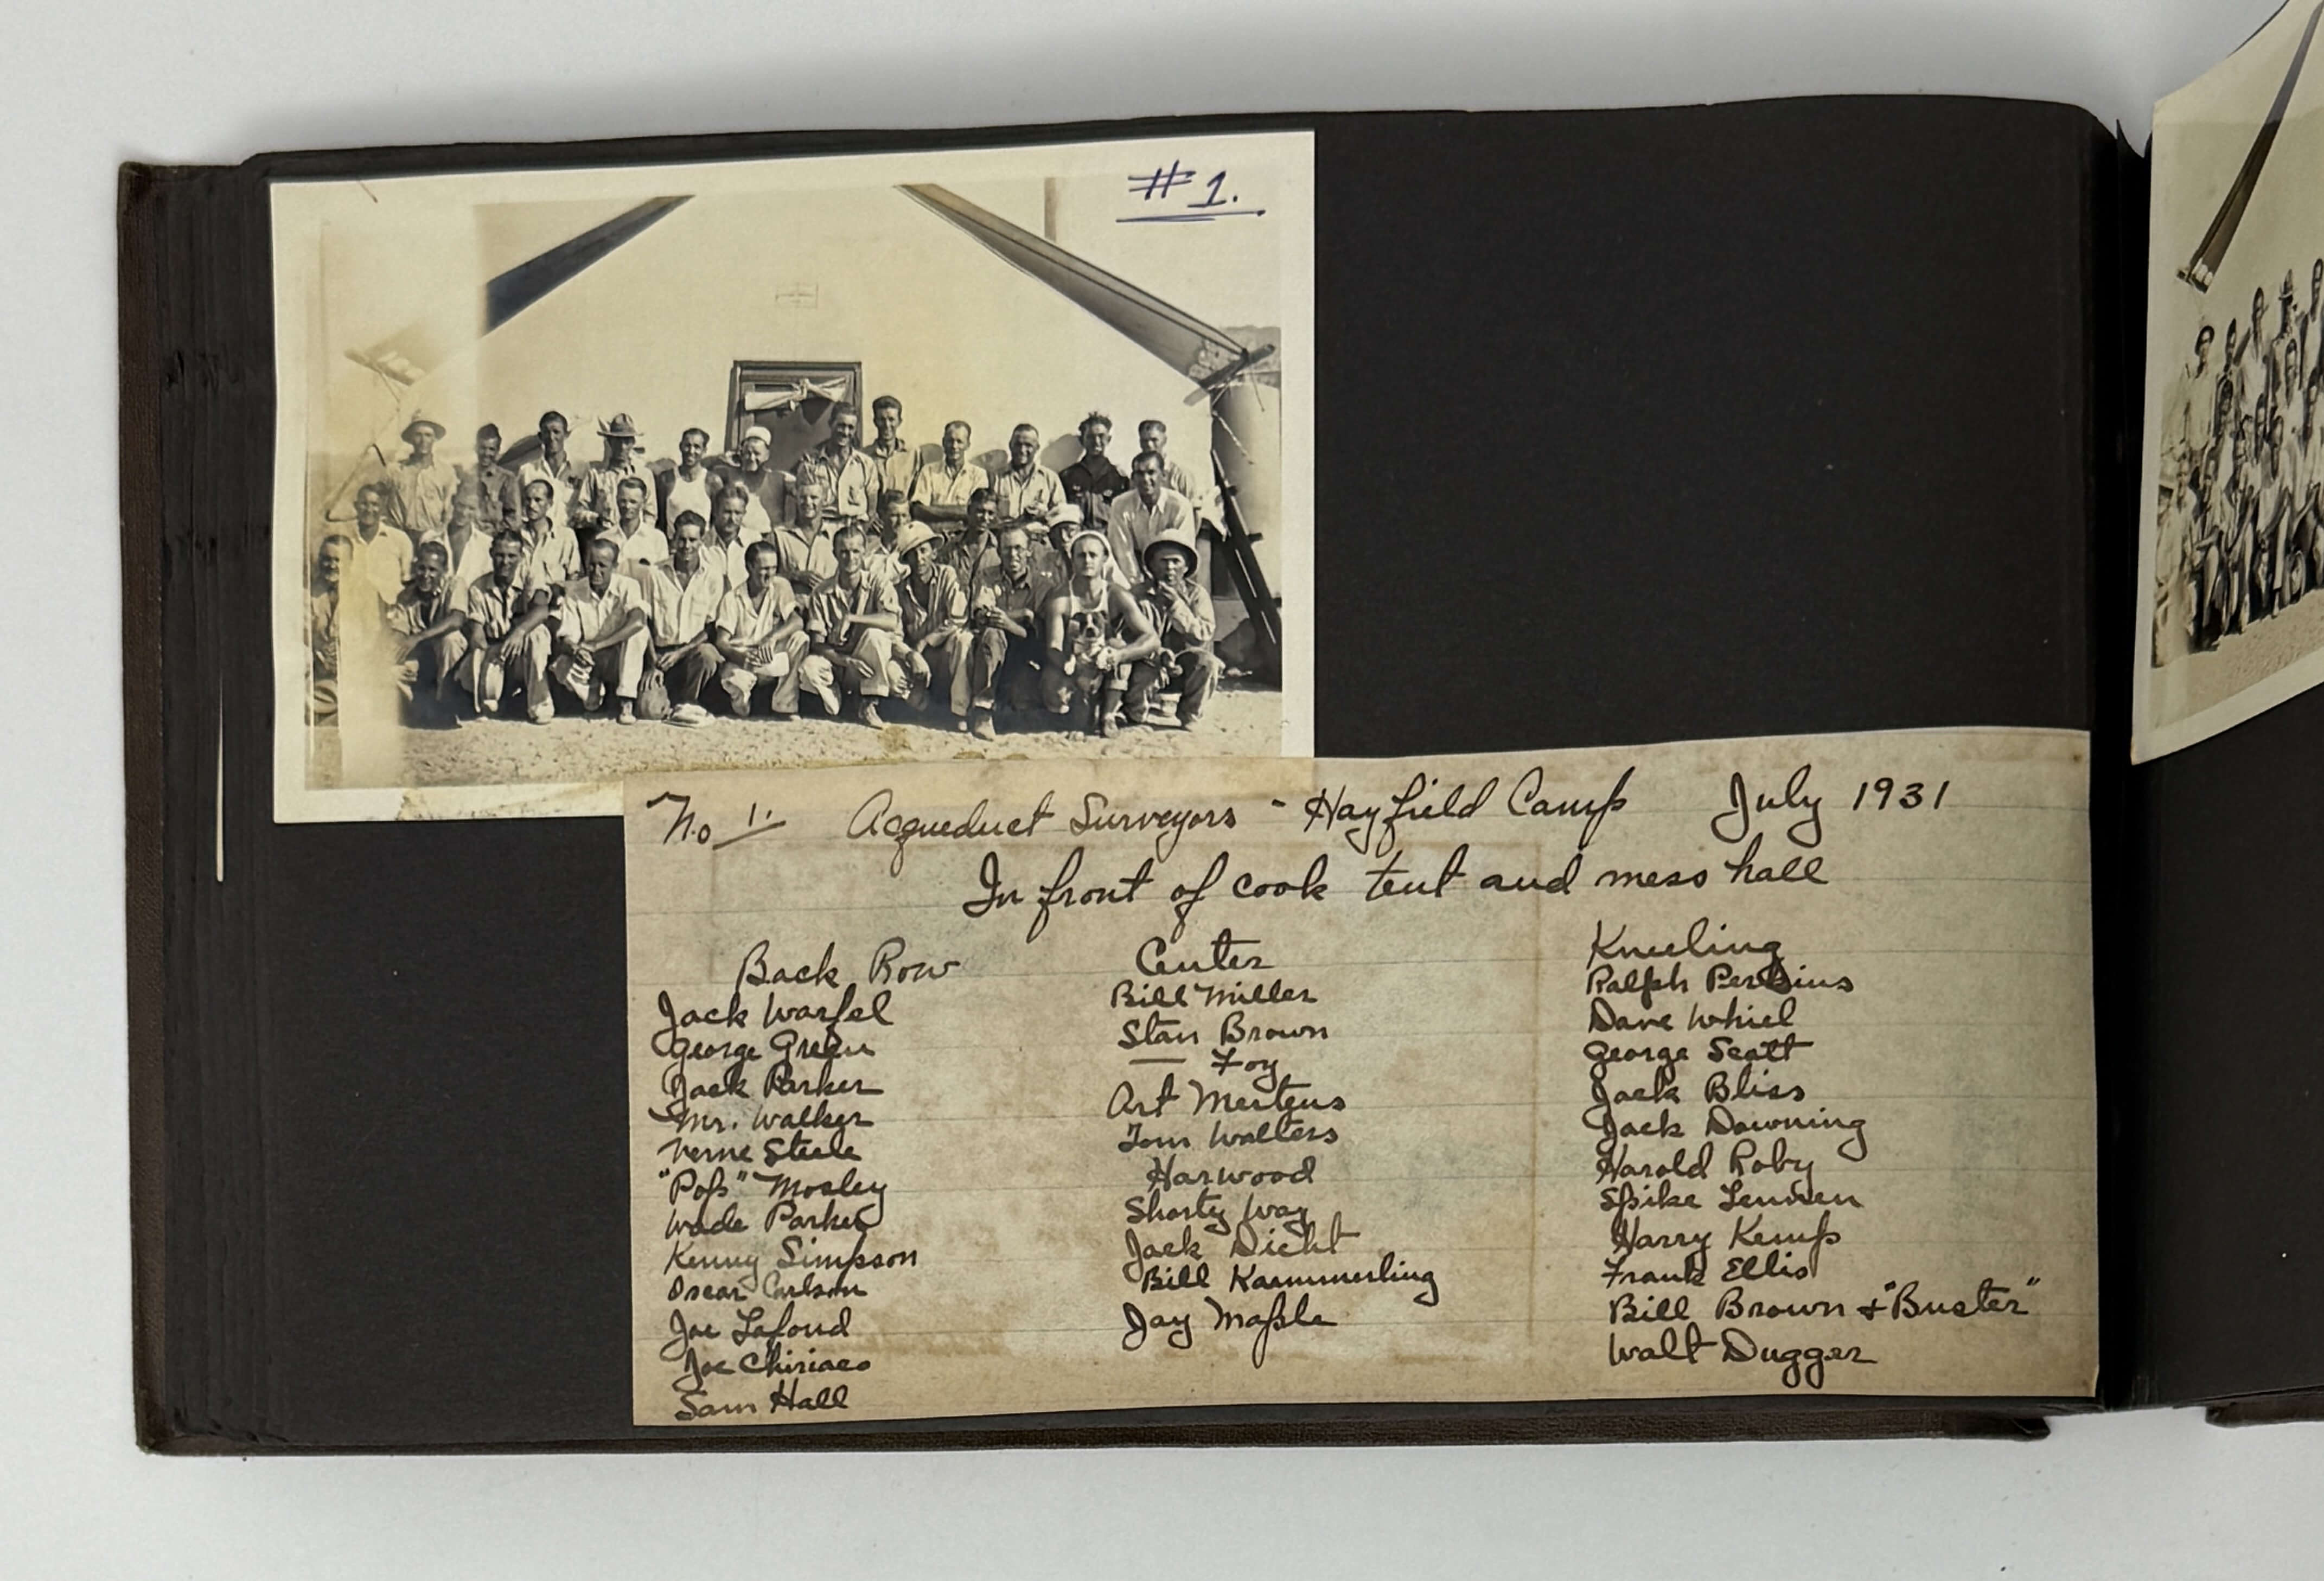 #1.
No 1. Acqueduct Surveyors - Hayfield Camp July 1931
In front of cook tent and mess hall
Back Row
Jack Warfel
George Green
Jack Parker
Mr. Walker
Verne Steele
"Pop" Mosley
Wade Parker
Kenny Simpson
Oscar Carlson
Joe Lafond
Joe Chiriaco
Sam Hall
Center
Bill Miller
Stan Brown
— Foy
Art Mertens
Tom Walters
Harwood
Shorty Way
Jack Dicht
Bill Kaemmerling
Jay Maple
Kneeling
Ralph Perkins
Dave Whiel
George Scott
Jack Bliss
Jack Downing
Harold Roby
Spike Lennen
Harry Kemp
Frank Ellis
Bill Brown + "Buster"
Walt Dugger